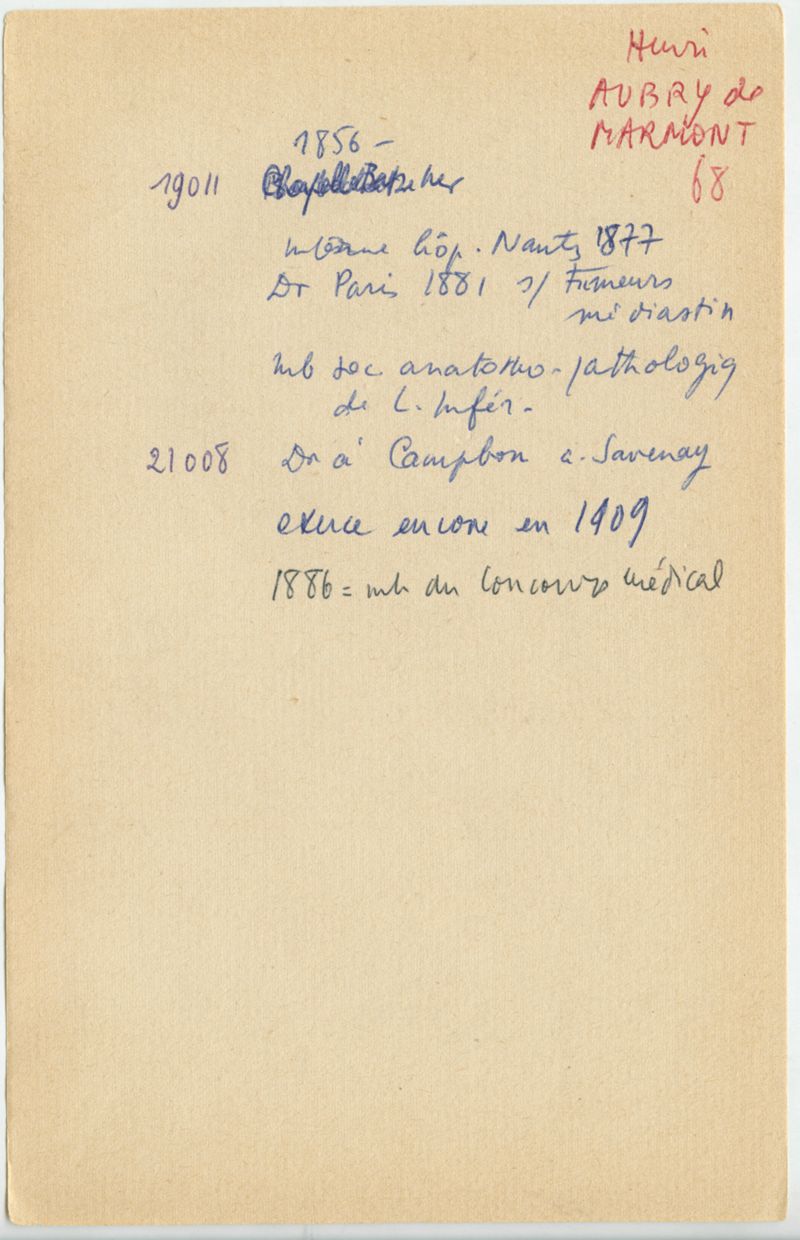 Henri
AUBRY de
MARMONT
68
1856 -
19011
interne hôp. Nantes 1877
Dr Paris 1881 s/ Tumeurs
médiastin
mb soc anatomo-pathologiq
de L. Infér.
21008 Dr à Campbon a. Savenay
exerce encore en 1909
1886 = mb du Concours médical